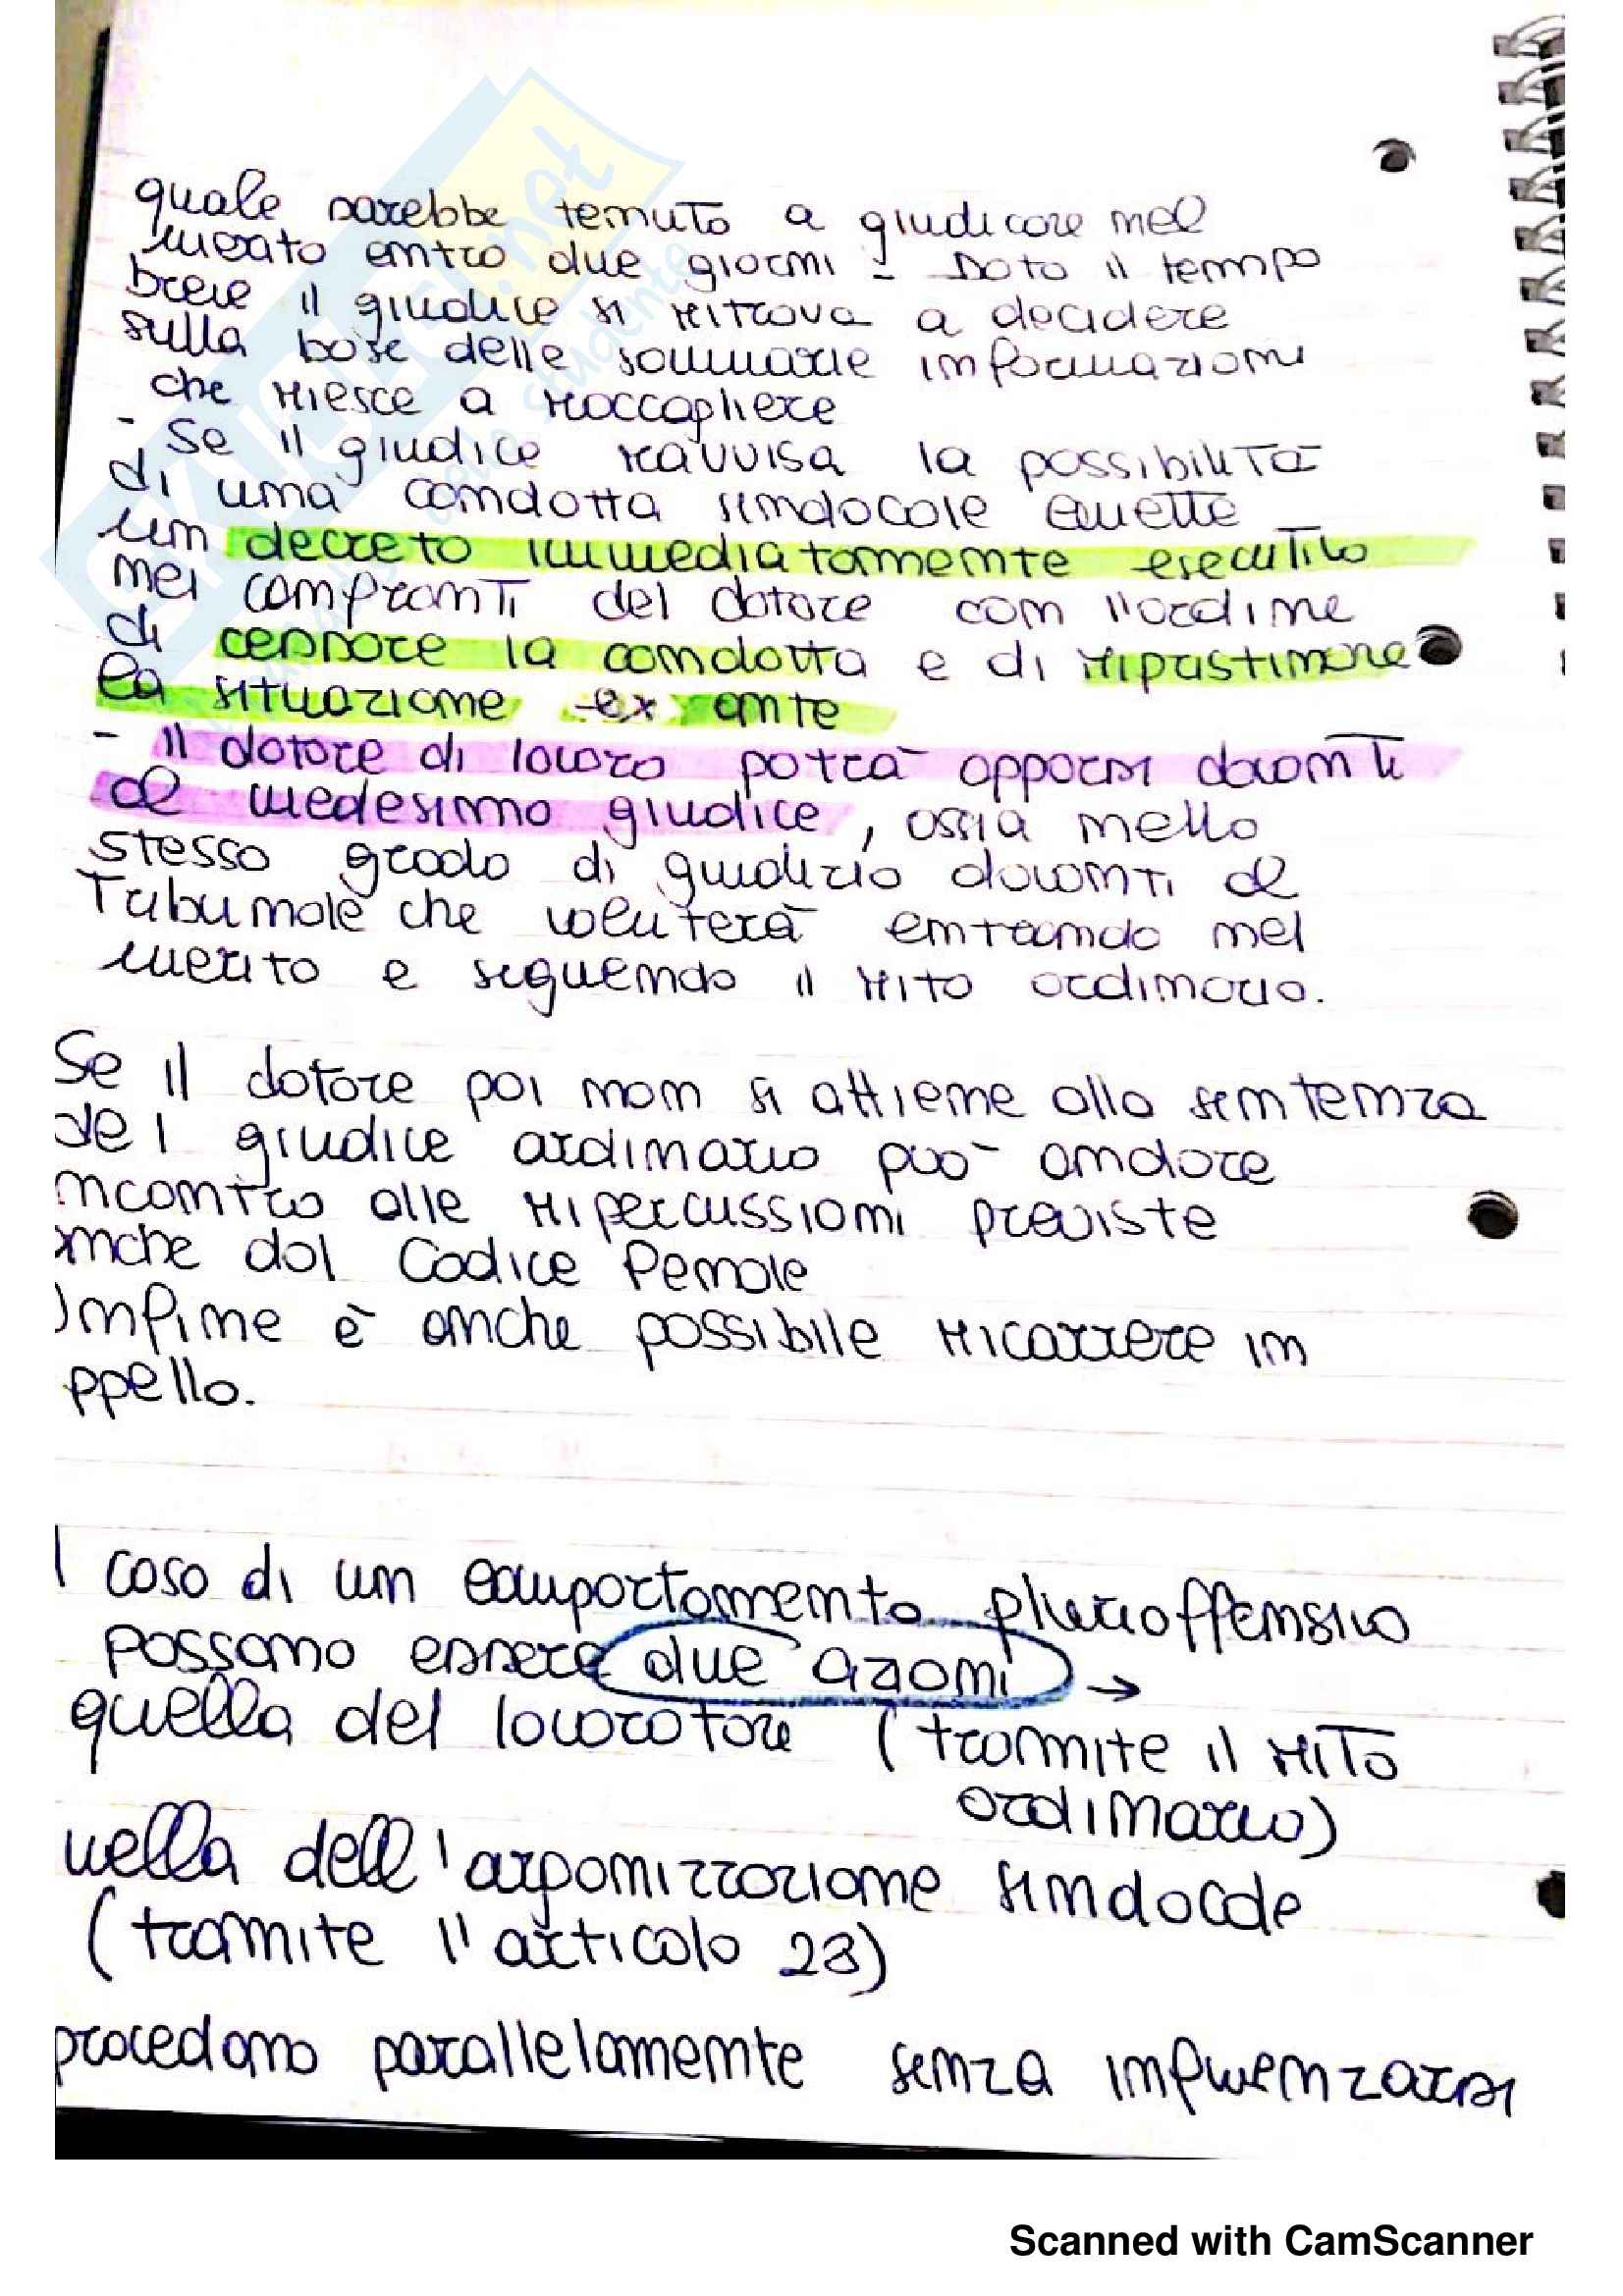 quale sarebbe tenuto a giudicare nel
merito entro due giorni - Dato il tempo
breve il giudice si ritrova a decidere
sulla base delle sommarie informazioni
che riesce a raccogliere
- Se il giudice ravvisa la possibilità
di una condotta sindacale emette
un decreto immediatamente esecutivo
nei confronti del datore con l'ordine
di cessare la condotta e di ripristinare
la situazione ex ante
- Il datore di lavoro potrà opporsi davanti
al medesimo giudice, ossia nello
stesso grado di giudizio davanti al
Tribunale che valuterà entrando nel
merito e seguendo il rito ordinario.
Se il datore poi non si attiene alla sentenza
del giudice ordinario può andare
incontro alle ripercussioni previste
anche dal Codice Penale
Infine è anche possibile ricorrere in
ppello.
l caso di un comportamento plurioffensivo
possono essere due azioni →
quella del lavoratore (tramite il rito
ordinario)
uella dell'organizzazione sindacale
(tramite l'articolo 28)
procedono parallelamente senza influenzarsi
Scanned with CamScanner